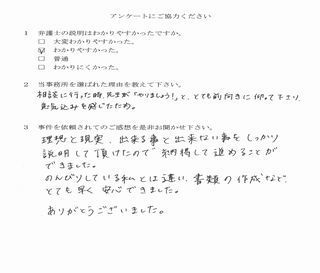 アンケートにご協力ください
1 弁護士の説明はわかりやすかったですか。
□ 大変わかりやすかった。
☑ わかりやすかった。
□ 普通
□ わかりにくかった。
2 当事務所を選ばれた理由を教えて下さい。
相談に行った時、先生が「やりましょう!」と、とても前向きに仰って下さり
意気込みを感じたため。
3 事件を依頼されてのご感想を是非お聞かせ下さい。
理想と現実、出来る事と出来ない事をしっかり
説明して頂けたので納得して進めることが
できました。
のんびりしている私とは違い、書類の作成など、
とても早く安心できました。
ありがとうございました。